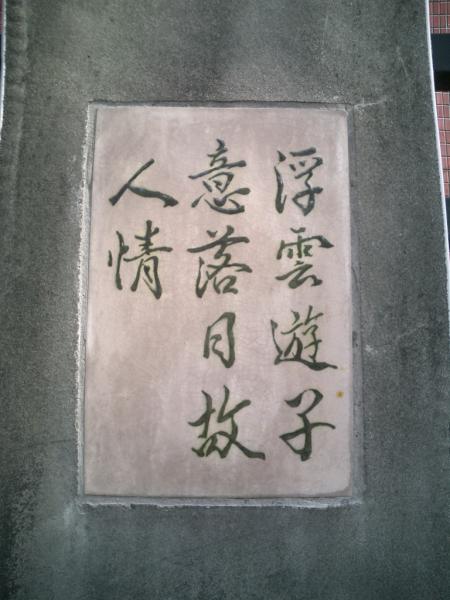 浮雲遊子
意落日故
人情